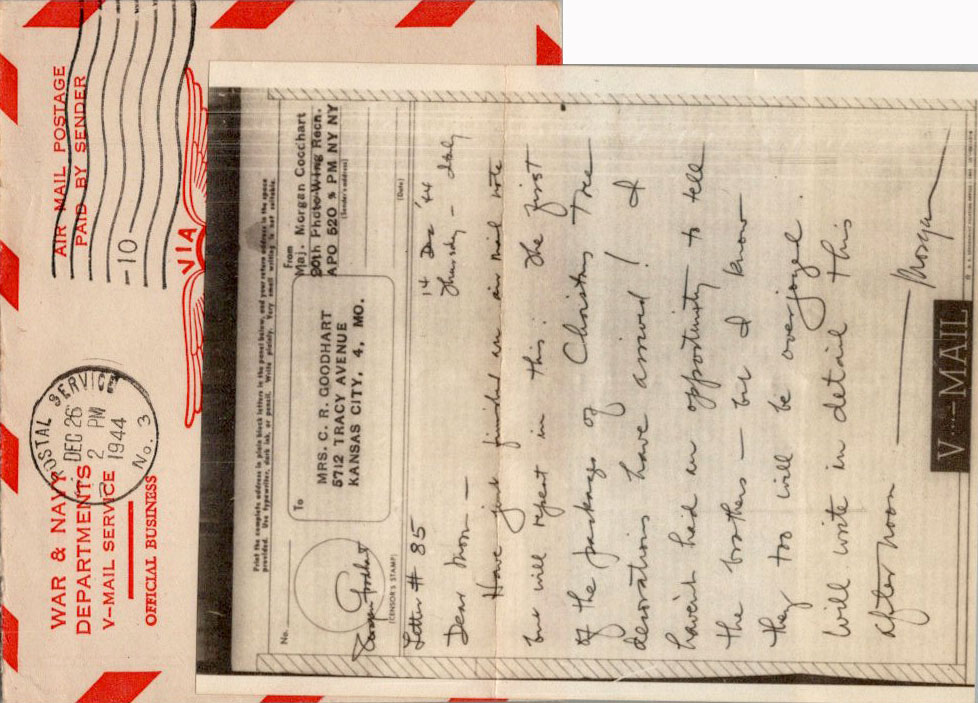 AIR MAIL POSTAGE
PAID BY SENDER
-10-
VIA
POSTAL SERVICE
DEC 26
2 PM
1944
No. 3
WAR & NAVY
DEPARTMENTS
V-MAIL SERVICE
OFFICIAL BUSINESS
Print the complete address in plain block letters in the panel below, and your return address in the space
provided. Use typewriter, dark ink, or pencil. Write plainly. Very small writing is not suitable.
No.
To
MRS. C. R. GOODHART
5712 TRACY AVENUE
KANSAS CITY, 4, MO.
From
Maj. Morgan Goodhart
90th Photo Wing Recn.
APO 520 % PM NY NY
(Sender's address)
(Date)
Morgan Goodhart
(CENSOR'S STAMP)
Letter # 85
14 Dec '44
Thursday - Italy
Dear Mom -
Have just finished an air mail note
but will repeat in this: The first
of the packages of Christmas Tree
decorations have arrived! I
haven't had an opportunity to tell
the brothers - but I know
they too will be overjoyed.
Will write in detail this
afternoon
Morgan
V····-MAIL